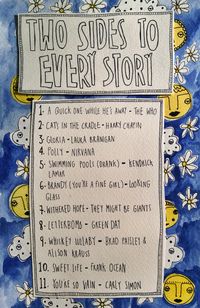 TWO SIDES TO
EVERY STORY
1- A QUICK ONE WHILE HE'S AWAY - THE WHO
2- CATS IN THE CRADLE - HARRY CHAPIN
3- GLORIA - LAURA BRANIGAN
4- POLLY - NIRVANA
5- SWIMMING POOLS (DRANK) - KENDRICK
LAMAR
6- BRANDY (YOU'RE A FINE GIRL) - LOOKING
GLASS
7- WITHERED HOPE - THEY MIGHT BE GIANTS
8- LETTERBOMB - GREEN DAY
9- WHISKEY LULLABY - BRAD PAISLEY &
ALISON KRAUSS
10. SWEET LIFE - FRANK OCEAN
11. YOU'RE SO VAIN - CARLY SIMON